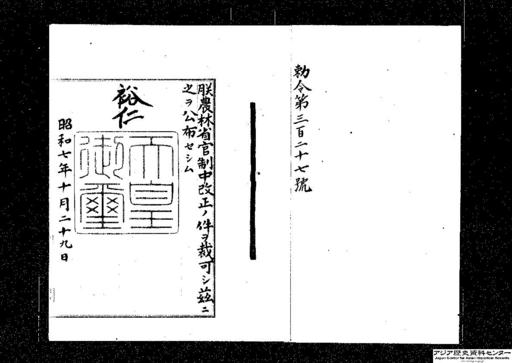 勅令第三百二十七號
朕農林省官制中改正ノ件ヲ裁可シ茲ニ
之ヲ公布セシム
裕仁
天皇
御璽
昭和七年十月二十九日
アジア歴史資料センター
Japan Center for Asian Historical Records